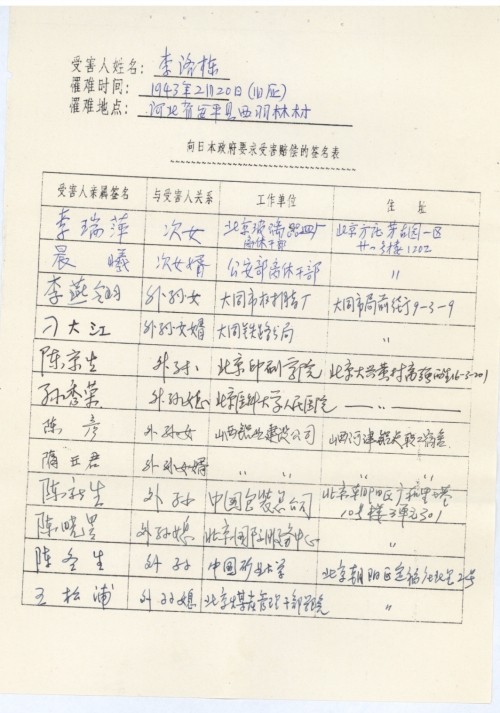 受害人姓名: 李洛栋
罹难时间: 1943年2月20日(旧历)
罹难地点: 河北省安平县西羽林村
向日本政府要求受害赔偿的签名表
受害人亲属签名 与受害人关系 工作单位 住址
李瑞萍 次女 北京玻璃 离休干部 北京方庄芳古园一区 1202
晨曦 次女婿 公安部离休干部 〃
李燕 外孙女 大同市 厂 大同市局前街9-3-9
刁大江 外孙女婿 大同铁路分局 〃
陈京生 外孙 北京印刷学院 北京大兴黄村 16-3-201
孙秀荣 外孙媳 北京医科大学人民医院 — 〃 —
陈彦 外孙女 山西铝业建设公司 山西河津铝
隋亚君 外孙女婿 〃 〃 〃 〃
陈 生 外孙 中国包装总公司 北京朝阳区 10号楼3单元301
陈晓 外孙媳 北京国际 服务中心 〃
陈冬生 外孙 中国矿业大学 北京朝阳区定福庄 2号
王松浦 外孙媳 北京煤炭管理干部学院 〃